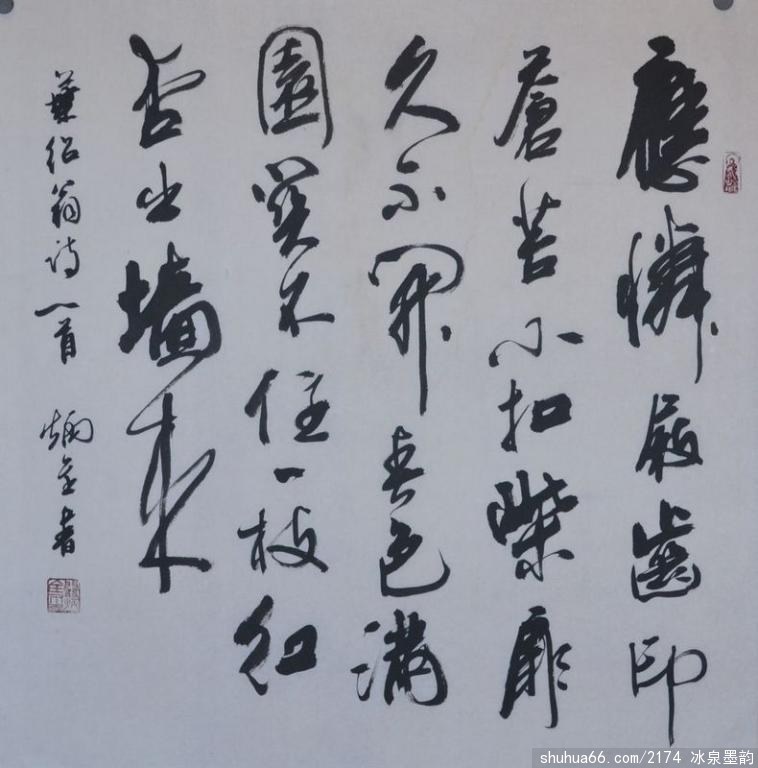 應憐屐齒印
蒼苔小扣柴扉
久不開春色滿
園關不住一枝紅
杏出墙來
葉紹翁詩一首 炳金書
shuhua66.com/2174 冰泉墨韵